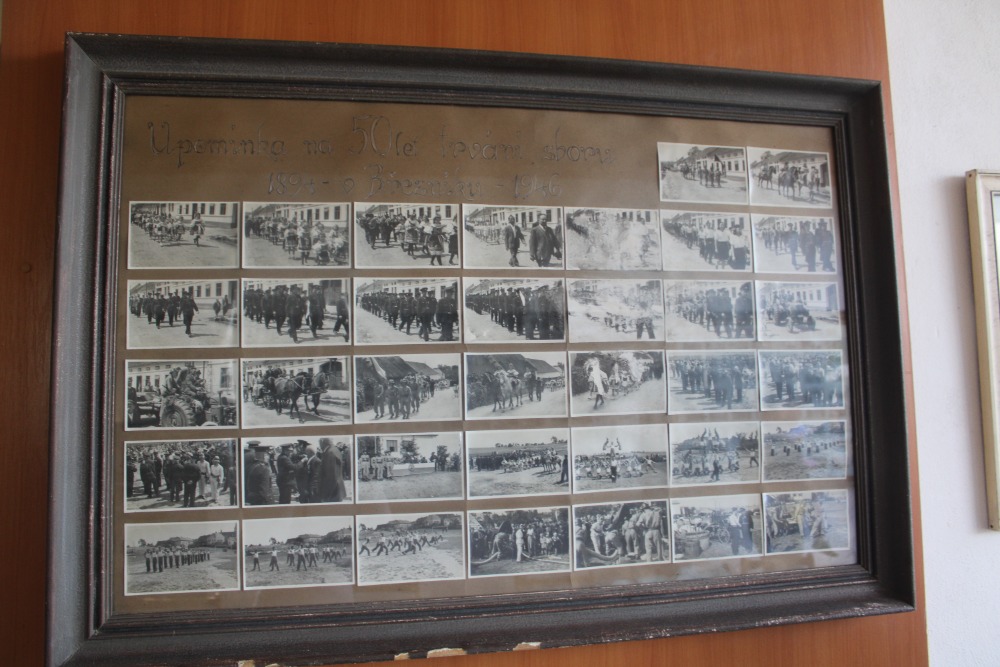 Upomínka na 50 leté trvání sboru
1894 - v Březníku - 1946